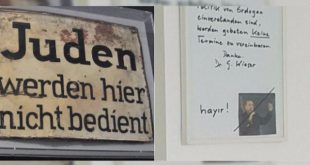 Juden
werden hier
nicht bedient
Politik von Erdogan
einverstanden sind,
werden gebeten keine
Termine zu vereinbaren
Danke
Dr. G. Wieser
hayır!